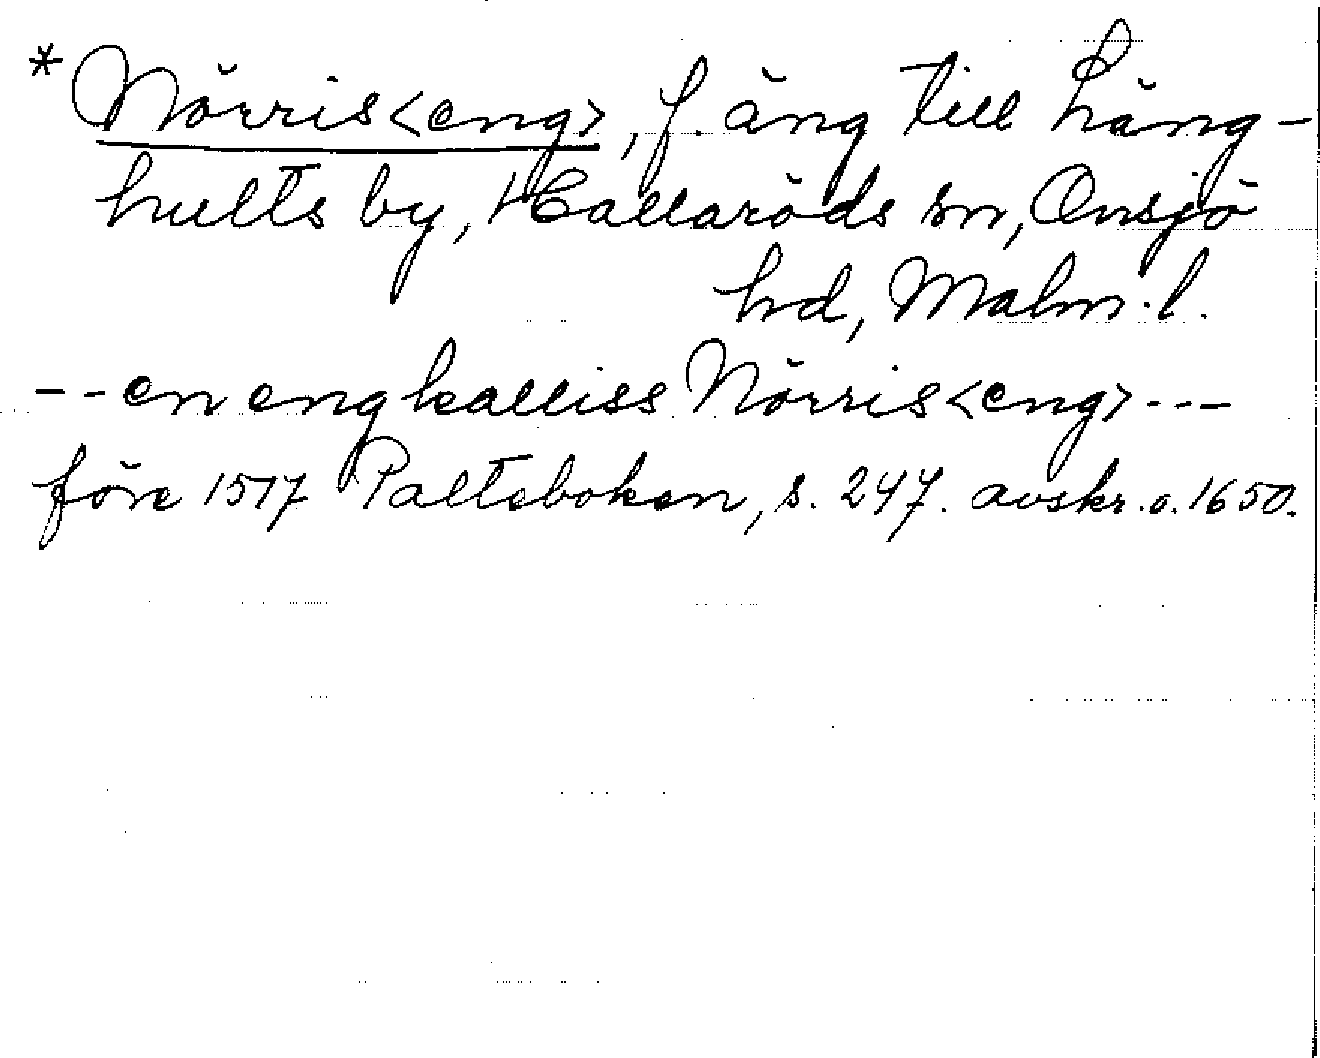 *Nörris<eng>, f. äng till Läng-
hults by, Hallaröds sn, Onsjö
hd, Malm.l.
-- en eng kalliss Nörris<eng> ---
före 1517 Palteboken, s. 247. avskr. o. 1650.